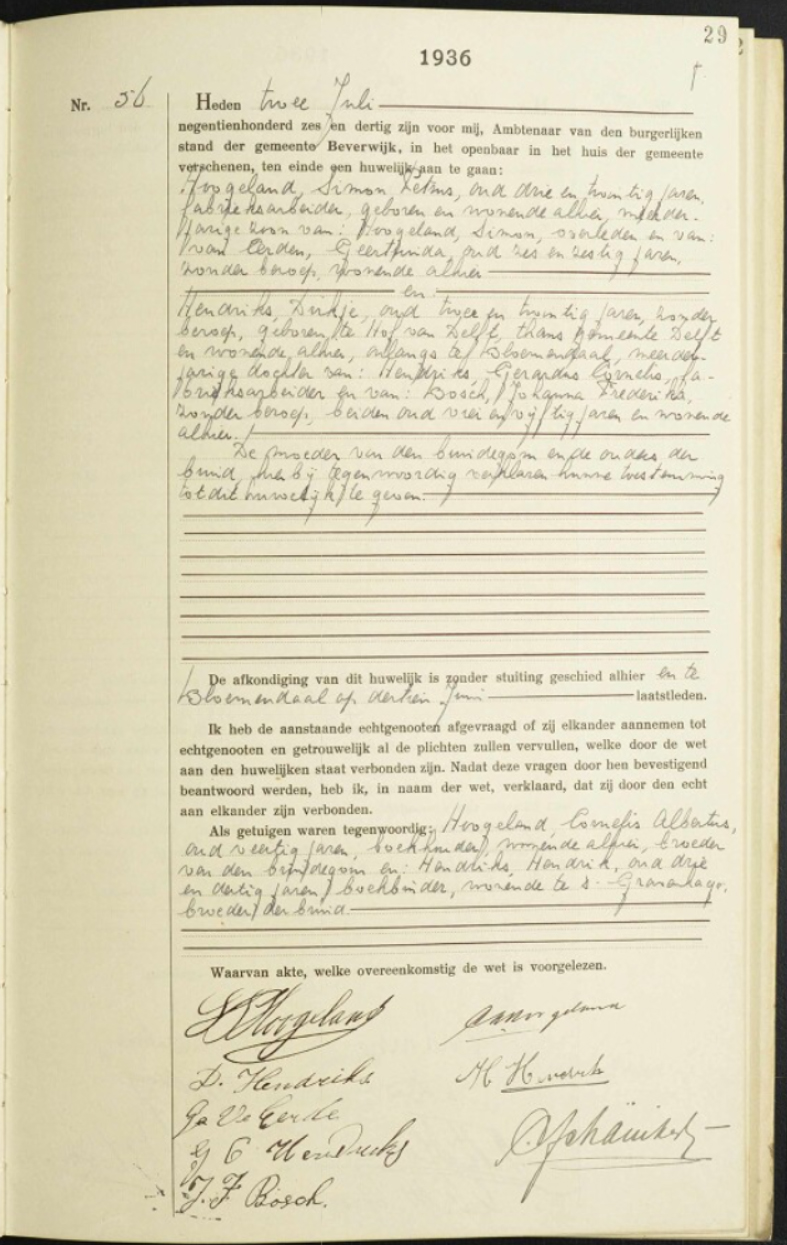 29
1936
Nr. 56
Heden twee Juli
negentienhonderd zes en dertig zijn voor mij, Ambtenaar van den burgerlijken
stand der gemeente Beverwijk, in het openbaar in het huis der gemeente
verschenen, ten einde een huwelijk aan te gaan:
Hoogeland, Simon Petrus, oud drie en twintig jaren,
fabrieksarbeider, geboren en wonende alhier, meerder-
jarige zoon van: Hoogeland, Simon, overleden en van:
van Eerden, Geertruida, oud zes en zestig jaren,
zonder beroep, wonende alhier
en
Hendriks, Dirkje, oud twee en twintig jaren, zonder
beroep, geboren te Hof van Delft, thans gemeente Delft
en wonende alhier, onlangs te Bloemendaal, meerder-
jarige dochter van: Hendriks, Gerardus Cornelis, fa-
brieksarbeider en van: Bosch, Johanna Frederika,
zonder beroep, beiden oud vier en vijftig jaren en wonende
alhier.
De moeder van den bruidegom en de ouders der
bruid, hierbij tegenwoordig verklaren hunne toestemming
tot dit huwelijk te geven.
De afkondiging van dit huwelijk is zonder stuiting geschied alhier en te
Bloemendaal op dertien Juni laatstleden.
Ik heb de aanstaande echtgenooten afgevraagd of zij elkander aannemen tot
echtgenooten en getrouwelijk al de plichten zullen vervullen, welke door de wet
aan den huwelijken staat verbonden zijn. Nadat deze vragen door hen bevestigend
beantwoord werden, heb ik, in naam der wet, verklaard, dat zij door den echt
aan elkander zijn verbonden.
Als getuigen waren tegenwoordig: Hoogeland, Cornelis Albertus,
oud veertig jaren, boekhouder, wonende alhier, broeder
van den bruidegom en: Hendriks, Hendrik, oud drie
en dertig jaren, boekbinder, wonende te 's-Gravenhage,
broeder der bruid.
Waarvan akte, welke overeenkomstig de wet is voorgelezen.
Hoogeland
D. Hendriks
H Hendriks
G C Hendriks
J. F Bosch.